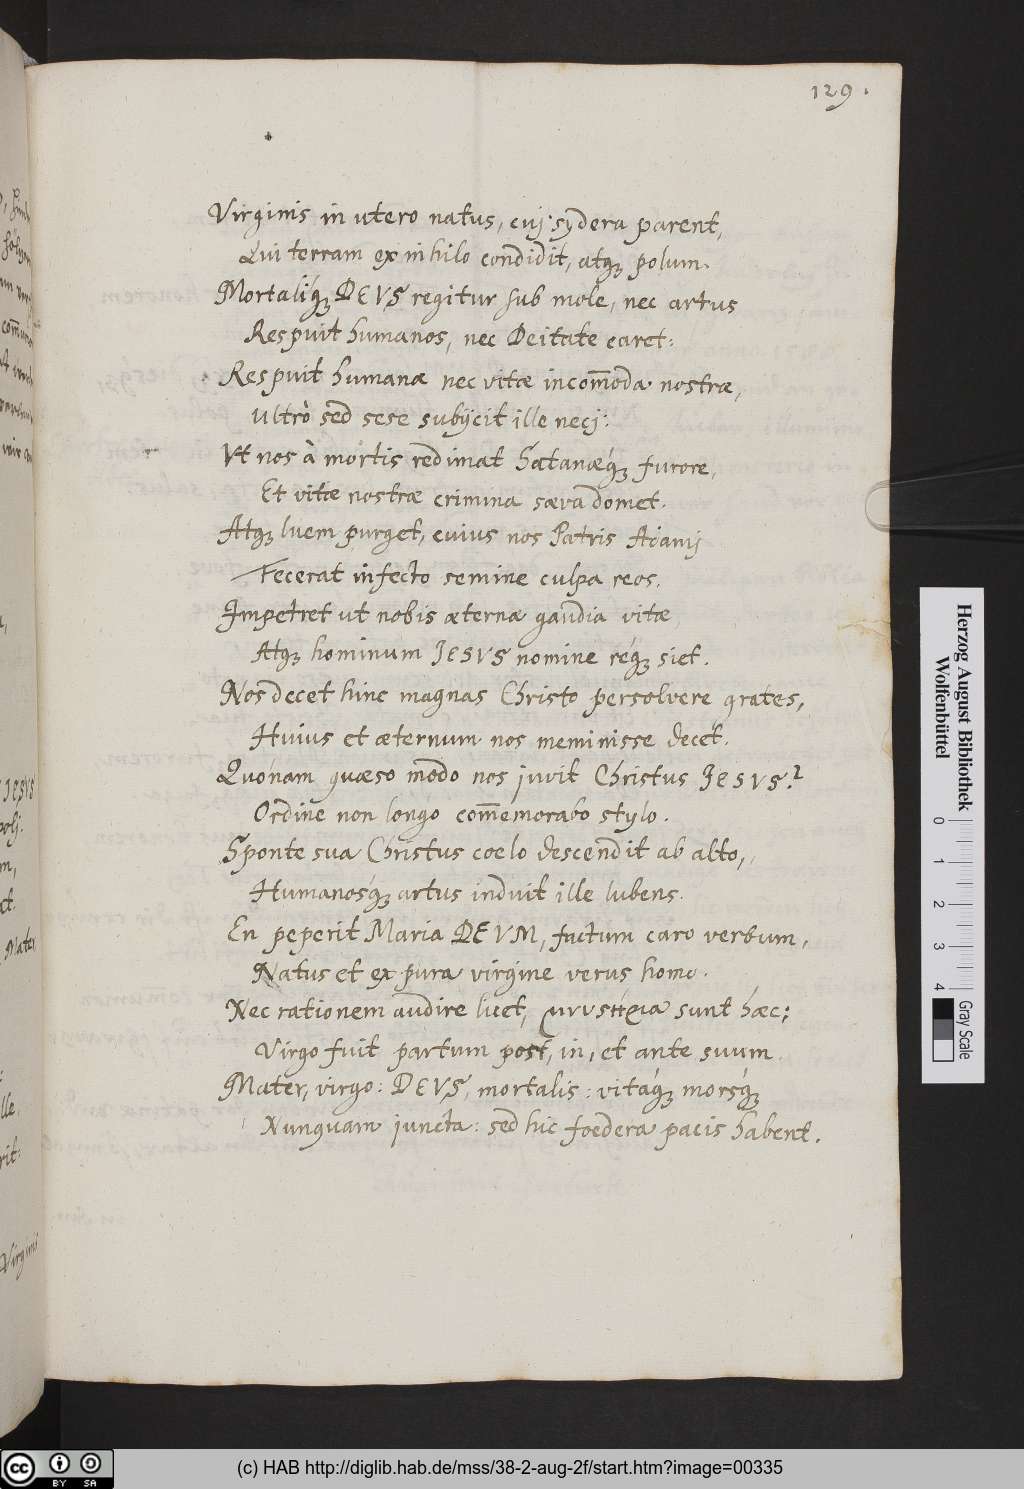 129.
Virginis in utero natus, cuj sydera parent,
Qui terram ex nihilo condidit, atq₃ polum.
Mortaliq́₃ DEVS regitur sub mole, nec artus
Respuit humanos, nec Deitate caret:
Respuit humanæ nec vitæ incom̄oda nostræ,
Ultrò sed sese subÿcit ille necj:
Vt nos à mortis redimat Satanæq́₃ furore,
Et vitæ nostræ crimina sæva domet.
Atq₃ luem purget, cuius nos Patris Adamj
Fecerat infecto semine culpa reos.
Impetret ut nobis æternæ gaudia vitæ
Atq₃ hominum JESVS nomine req́₃ siet.
Nos decet hinc magnas Christo persolvere grates,
Huius et æternum nos meminisse decet.
Quónam quæso modo nos juvit Christus JESVS?
Ordine non longo com̄emorabo stylo.
Sponte sua Christus coelo descendit ab alto,
Humanosq́₃ artus induit ille lubens.
En peperit Maria DEVM, factum caro verbum,
Natus et ex pura virgine verus homo.
Nec rationem audire licet, μυστήρια sunt hæc:
Virgo fuit partum post, in, et ante suum.
Mater, virgo: DEVS, mortalis: vitáq₃ morsq́₃
Nunquam juncta: sed hic foedera pacis habent.
Herzog August Bibliothek
Wolfenbüttel
0 1 2 3 4
Gray Scale
cc BY SA
(c) HAB http://diglib.hab.de/mss/38-2-aug-2f/start.htm?image=00335